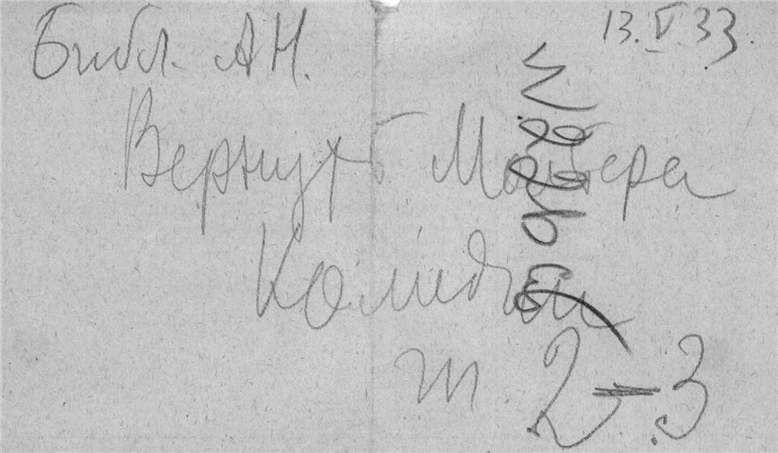 Библ. АН. 13.V.33
Вернуть Мольера
Комедии
т 2-3